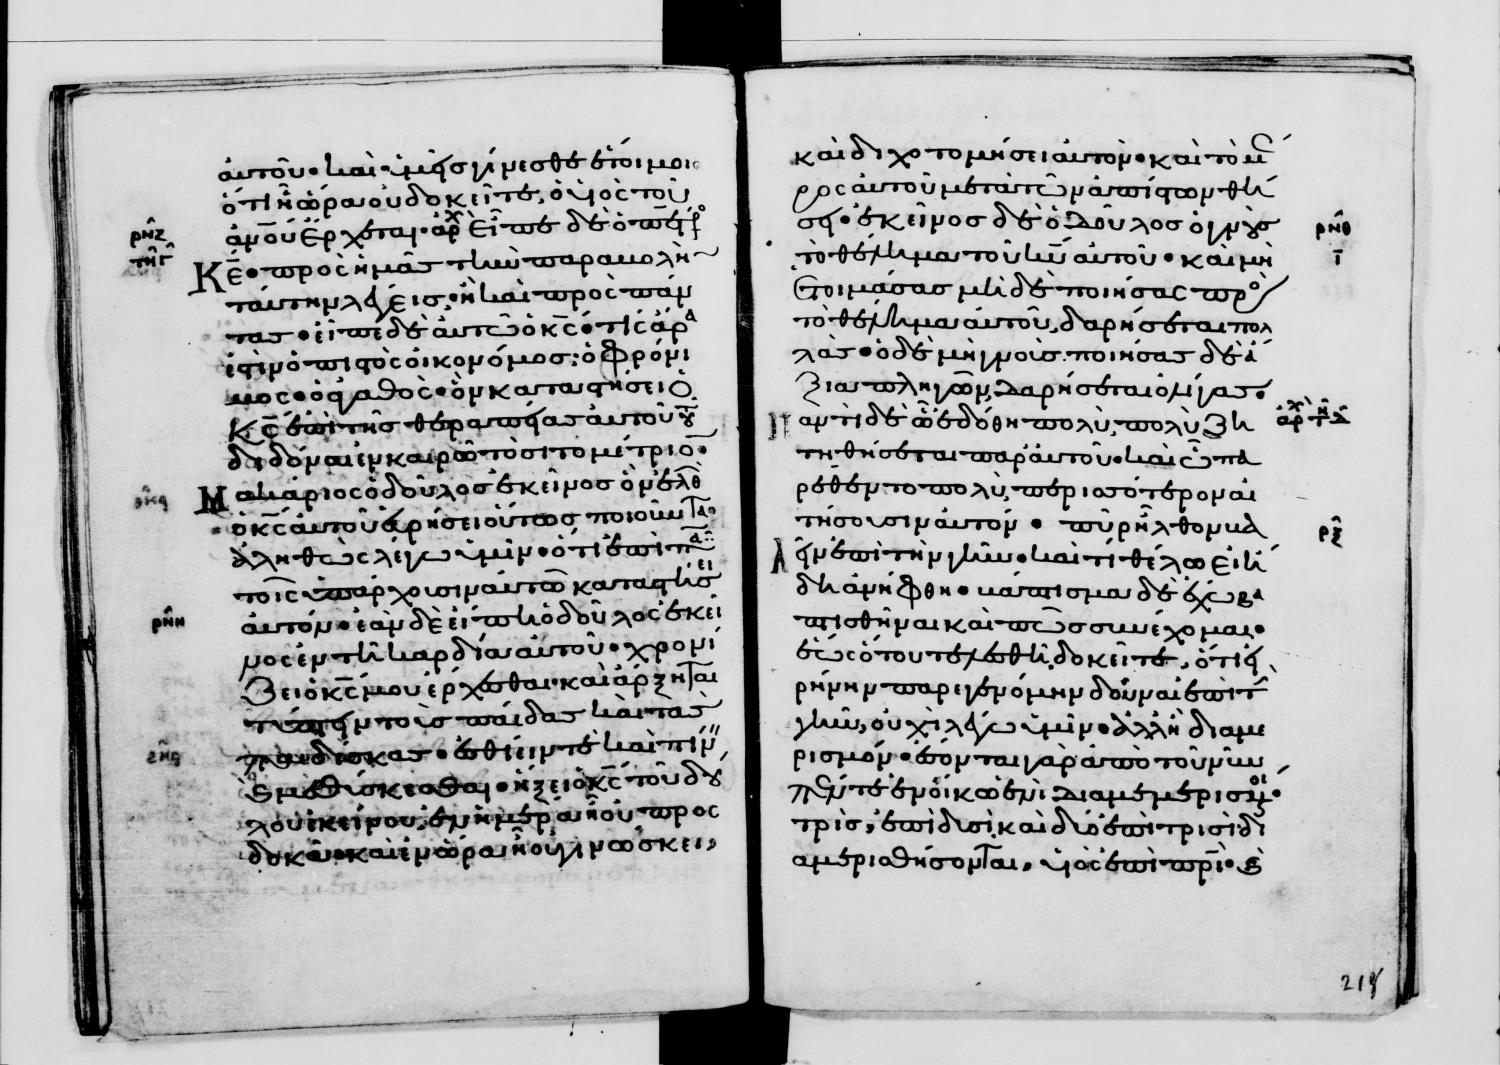 αυτοῦ· καὶ ὑμεῖς γίνεσθε ἕτοιμοι
ὅτι ἧ ὥρα οὐ δοκεῖτε, ὁ υἱὸς τοῦ
ἀνου ἔρχεται· ἀρχ εἶπε δὲ ὁ πετρο
ρνζ
τῆ γ
Κε· πρὸς ἡμᾶς τὴν παραβολὴν
ταύτην λέγεις· ἢ καὶ πρὸς πάν
τας· εἶπε δὲ αὐτῶ ὁ κς· τίς ἄρα
ἐστὶν ὁ πιστὸς οἰκονόμος; ὁ φρόνι
μος· ὁ ἀγαθὸς· ὃν καταστήσει ὁ
κς ἐπὶ τῆς θεραπείας αὐτοῦ τοῦ
διδόναι ἐν καιρῶ τὸ σιτομέτριον·
Μακάριος ὁ δοῦλος ἐκεῖνος ὃν ἐλθ
ὁ κς αὐτοῦ εὑρήσει οὕτως ποιοῦντα·
ἀληθῶς λέγω ὑμῖν· ὅτι ἐπὶ πᾶσι
τοῖς ὑπάρχουσιν αὐτῶ καταστήσει
ρνη
αὐτόν· ἐὰν δὲ εἴπη ὁ δοῦλος ἐκεῖ
νος ἐν τῆ καρδία αὐτοῦ· χρονί
ζει ὁ κς μου ἔρχεσθαι· καὶ ἄρξηται
τύπτειν τοὺς παῖδας καὶ τὰς
παιδίσκας· ἐσθίειν τὲ καὶ πίνειν
καὶ μεθύσκεσθαι· ἥξει ὁ κς τοῦ δού
λου ἐκείνου, ἐν ἡμέρα ἧ οὐ προς
δοκᾶ· καὶ ἐν ὥρα ἧ οὐ γινώσκει,
καὶ διχοτομήσει αὐτόν· καὶ τὸ μέ
ρος αὐτοῦ μετὰ τῶν ἀπίστων θή
σει· ἐκεῖνος δὲ ὁ δοῦλος ὁ γνοὺς
ρνθ
τὸ θέλημα τοῦ κυ αὐτοῦ· καὶ μὴ
ἑτοιμάσας μὴ δὲ ποιήσας πρὸς
τὸ θέλημα αὐτοῦ, δαρήσεται πολ
λάς· ὁ δὲ μὴ γνοὺς ποιήσας δὲ ἄ
ξια πληγῶν, δαρήσεται ὀλίγας·
Παντὶ δὲ ὧ ἐδόθη πολὺ, πολὺ ζη
τηθήσεται παρ' αὐτοῦ· καὶ ὧ πα
ρέθεντο πολὺ, περισσότερον αἰ
τήσουσιν αὐτόν· πῦρ ἦλθον βα
ρξ
λεῖν ἐπὶ τὴν γῆν· καὶ τί θέλω εἰ ἤ
δη ἀνήφθη· βάπτισμα δὲ ἔχω βα
πτισθῆναι καὶ πῶς συνέχομαι·
ἕως ὅτου τελεσθῆ, δοκεῖτε, ὅτι εἰ
ρήνην παρεγενόμην δοῦναι ἐπὶ τ
γῆν, οὐχὶ λέγω ὑμῖν· ἀλλ' ἢ διαμε
ρισμόν· ἔσονται γὰρ ἀπὸ τοῦ νῦν
πέντε ἐν οἴκω ἑνὶ διαμεμερισμένοι·
τρὶς, ἐπὶ δυσὶ, καὶ δύο ἐπὶ τρισὶ δι
αμερισθήσονται, υἱὸς ἐπὶ πρι· καὶ
218